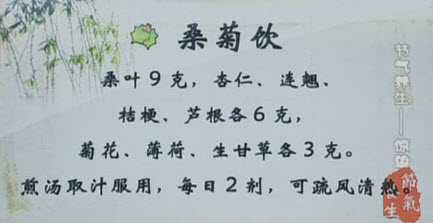 桑菊饮
桑叶9克，杏仁、连翘、
桔梗、芦根各6克，
菊花、薄荷、生甘草各3克。
煎汤取汁服用，每日2剂，可疏风清热。
节气养生——惊蛰
節氣